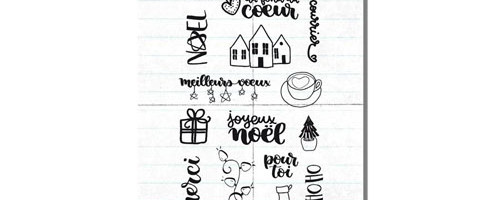 coeur
courrier
NOEL
meilleurs voeux
joyeux
noël
merci
pour
toi
HOHO